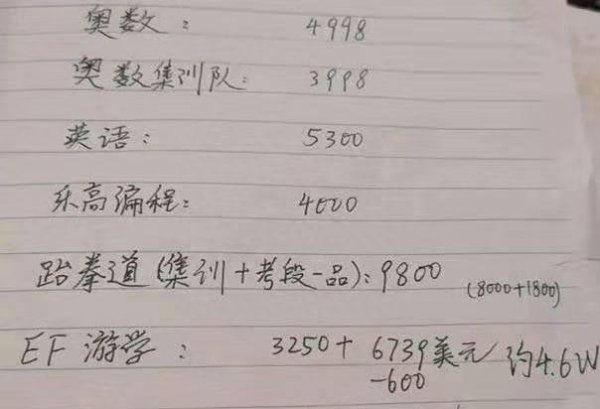 奥数： 4998
奥数集训队： 3998
英语： 5300
乐高编程： 4000
跆拳道（集训+考段一品）：9800 （8000+1800）
EF 游学： 3250+ 6739美元 约4.6W
-600